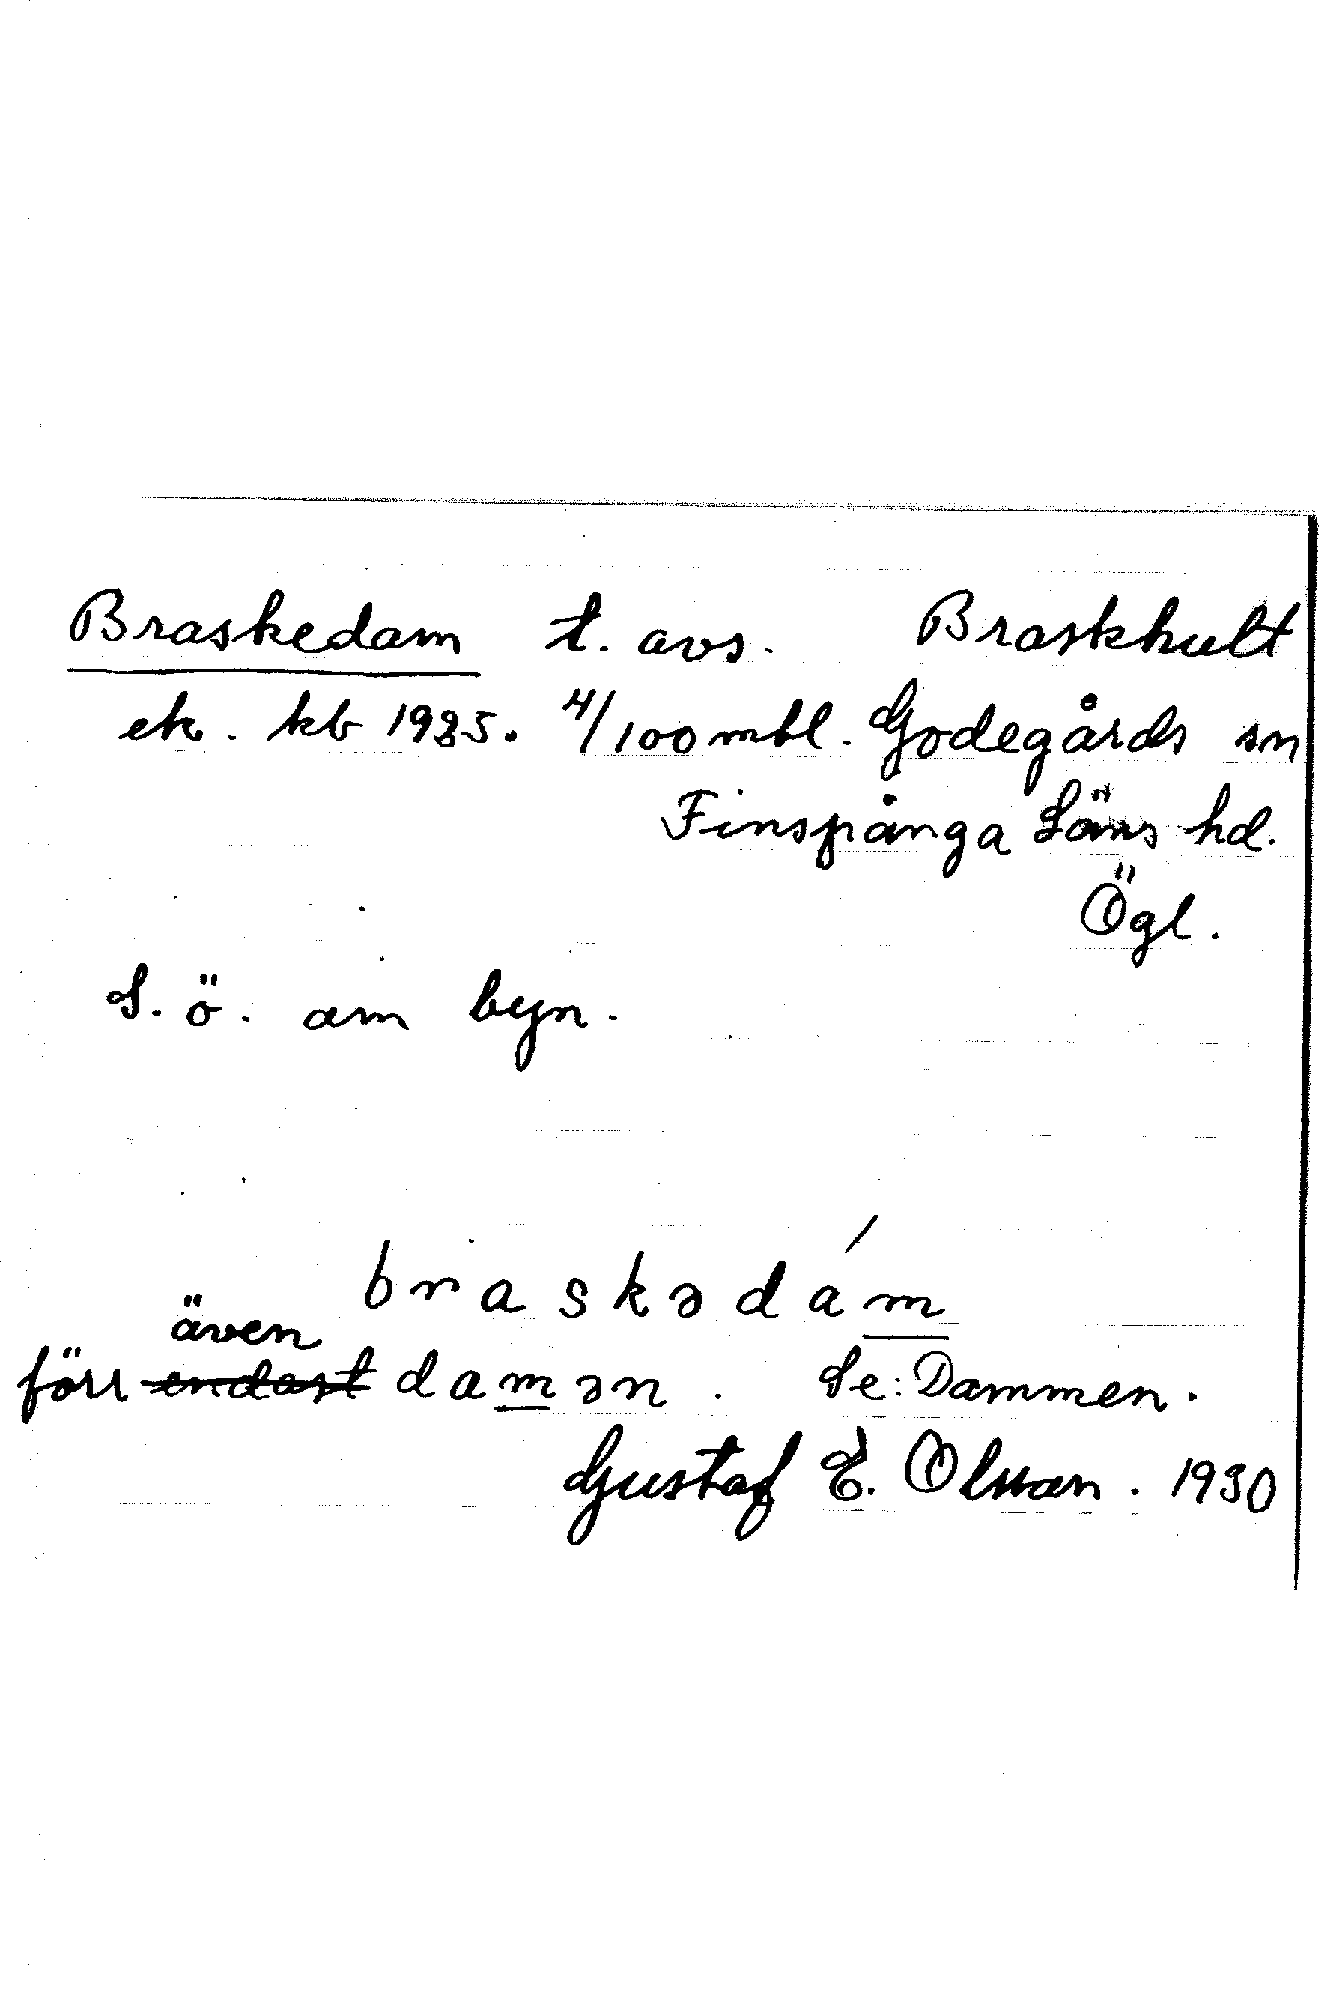 Braskedam t. avs. Braskhult
ek. kb 1925. 4/100 mtl. Godegårds sn
Finspånga Läns hd.
Ögl.
S. ö. om byn.
braskədám
även
förr endast damən. Se: Dammen.
Gustaf E. Olsson. 1930